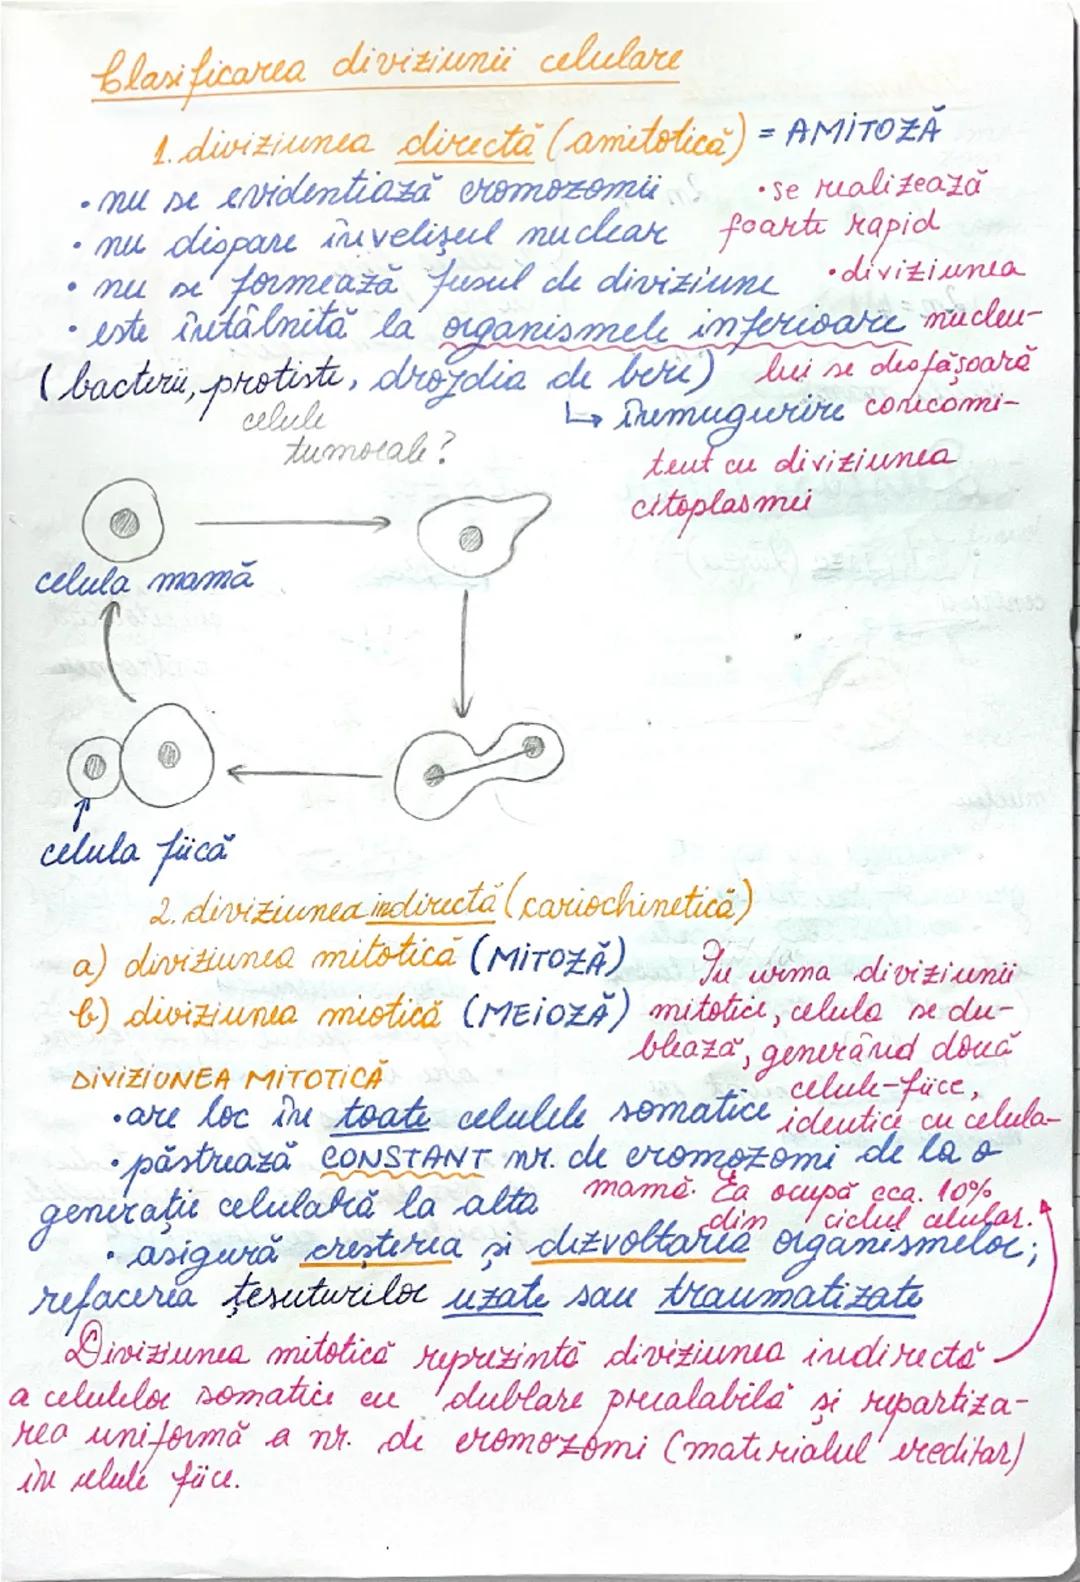 Clasificarea diviziunii celulare
1. diviziunea directă (amitotică) = AMITOZĂ
• nu se evidentiază cromozomii
• nu dispare învelișul nuclear
• nu se formează fusul de diviziune
• este întâlnită la organismele inferioare
(bacterii, protiste, drojdia de bere)
↳ înmugurire
celule
tumorale?
• se realizează
foarte rapid
• diviziunea
nucleu-
lui se desfășoară
concomi-
tent cu diviziunea
citoplasmei
celula mamă
celula fiică
2. diviziunea indirectă (cariochinetică)
a) diviziunea mitotică (MITOZĂ)
b) diviziunea miotică (MEIOZĂ)
În urma diviziunii
mitotice, celula se du-
blează, generând două
celule-fiice,
identice cu celula-
mamă. Ea ocupă cca. 10%
din ciclul celular.
DIVIZIUNEA MITOTICĂ
• are loc în toate celulele somatice
• păstrează CONSTANT nr. de cromozomi de la o
generație celulară la alta
• asigură creșterea și dezvoltarea organismelor;
refacerea țesuturilor uzate sau traumatizate
Diviziunea mitotică reprezintă diviziunea indirectă
a celulelor somatice cu dublare prealabilă și repartiza-
rea uniformă a nr. de cromozomi (materialul ereditar)
în celule fiice.